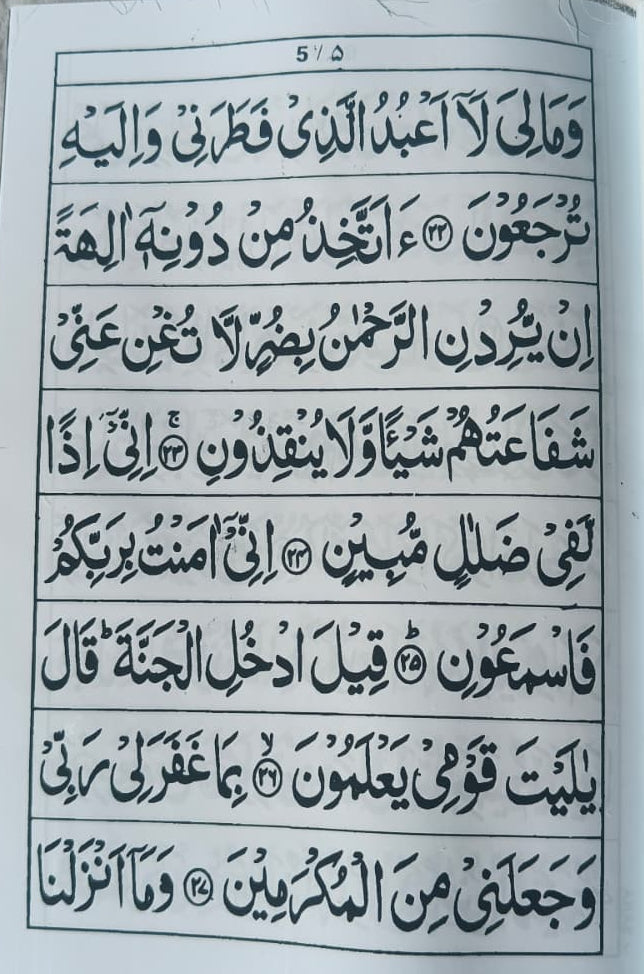 5/۵
وَمَا لِیَ لَاۤ اَعْبُدُ الَّذِیْ فَطَرَنِیْ وَاِلَیْهِ
تُرْجَعُوْنَ ﴿۲۲﴾ ءَاَتَّخِذُ مِنْ دُوْنِهٖۤ اٰلِهَةً
اِنْ یُّرِدْنِ الرَّحْمٰنُ بِضُرٍّ لَّا تُغْنِ عَنِّیْ
شَفَاعَتُهُمْ شَیْـًٔا وَّلَا یُنْقِذُوْنِ ﴿۲۳﴾ۚ اِنِّیْۤ اِذًا
لَّفِیْ ضَلٰلٍ مُّبِیْنٍ ﴿۲۴﴾ اِنِّیْۤ اٰمَنْتُ بِرَبِّكُمْ
فَاسْمَعُوْنِ ﴿۲۵﴾ؕ قِیْلَ ادْخُلِ الْجَنَّةَ ؕ قَالَ
یٰلَیْتَ قَوْمِیْ یَعْلَمُوْنَ ﴿۲۶﴾ۙ بِمَا غَفَرَ لِیْ رَبِّیْ
وَجَعَلَنِیْ مِنَ الْمُكْرَمِیْنَ ﴿۲۷﴾ وَمَاۤ اَنْزَلْنَا